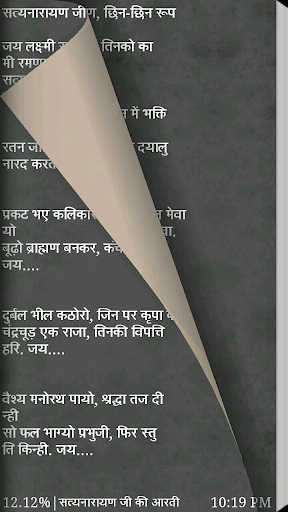 सत्यनारायण जीण, छिन-छिन रूप
जय लक्ष्मी तिनको का
मी रमण
सत्य
न में भक्ति
रतन ज दयालु
नारद करत
प्रकट भए कलिका त मेवा
यो
बूढ़ो ब्राह्मण बनकर,
जय....
दुर्बल भील कठोरो, जिन पर कृपा
चंद्रचूड़ एक राजा, तिनकी विपति
हरि. जय....
वैश्य मनोरथ पायो, श्रद्धा तज दी
न्ही
सो फल भाग्यो प्रभुजी, फिर स्तु
ति किन्ही. जय....
12.12% | सत्यनारायण जी की आरती 10:19 PM